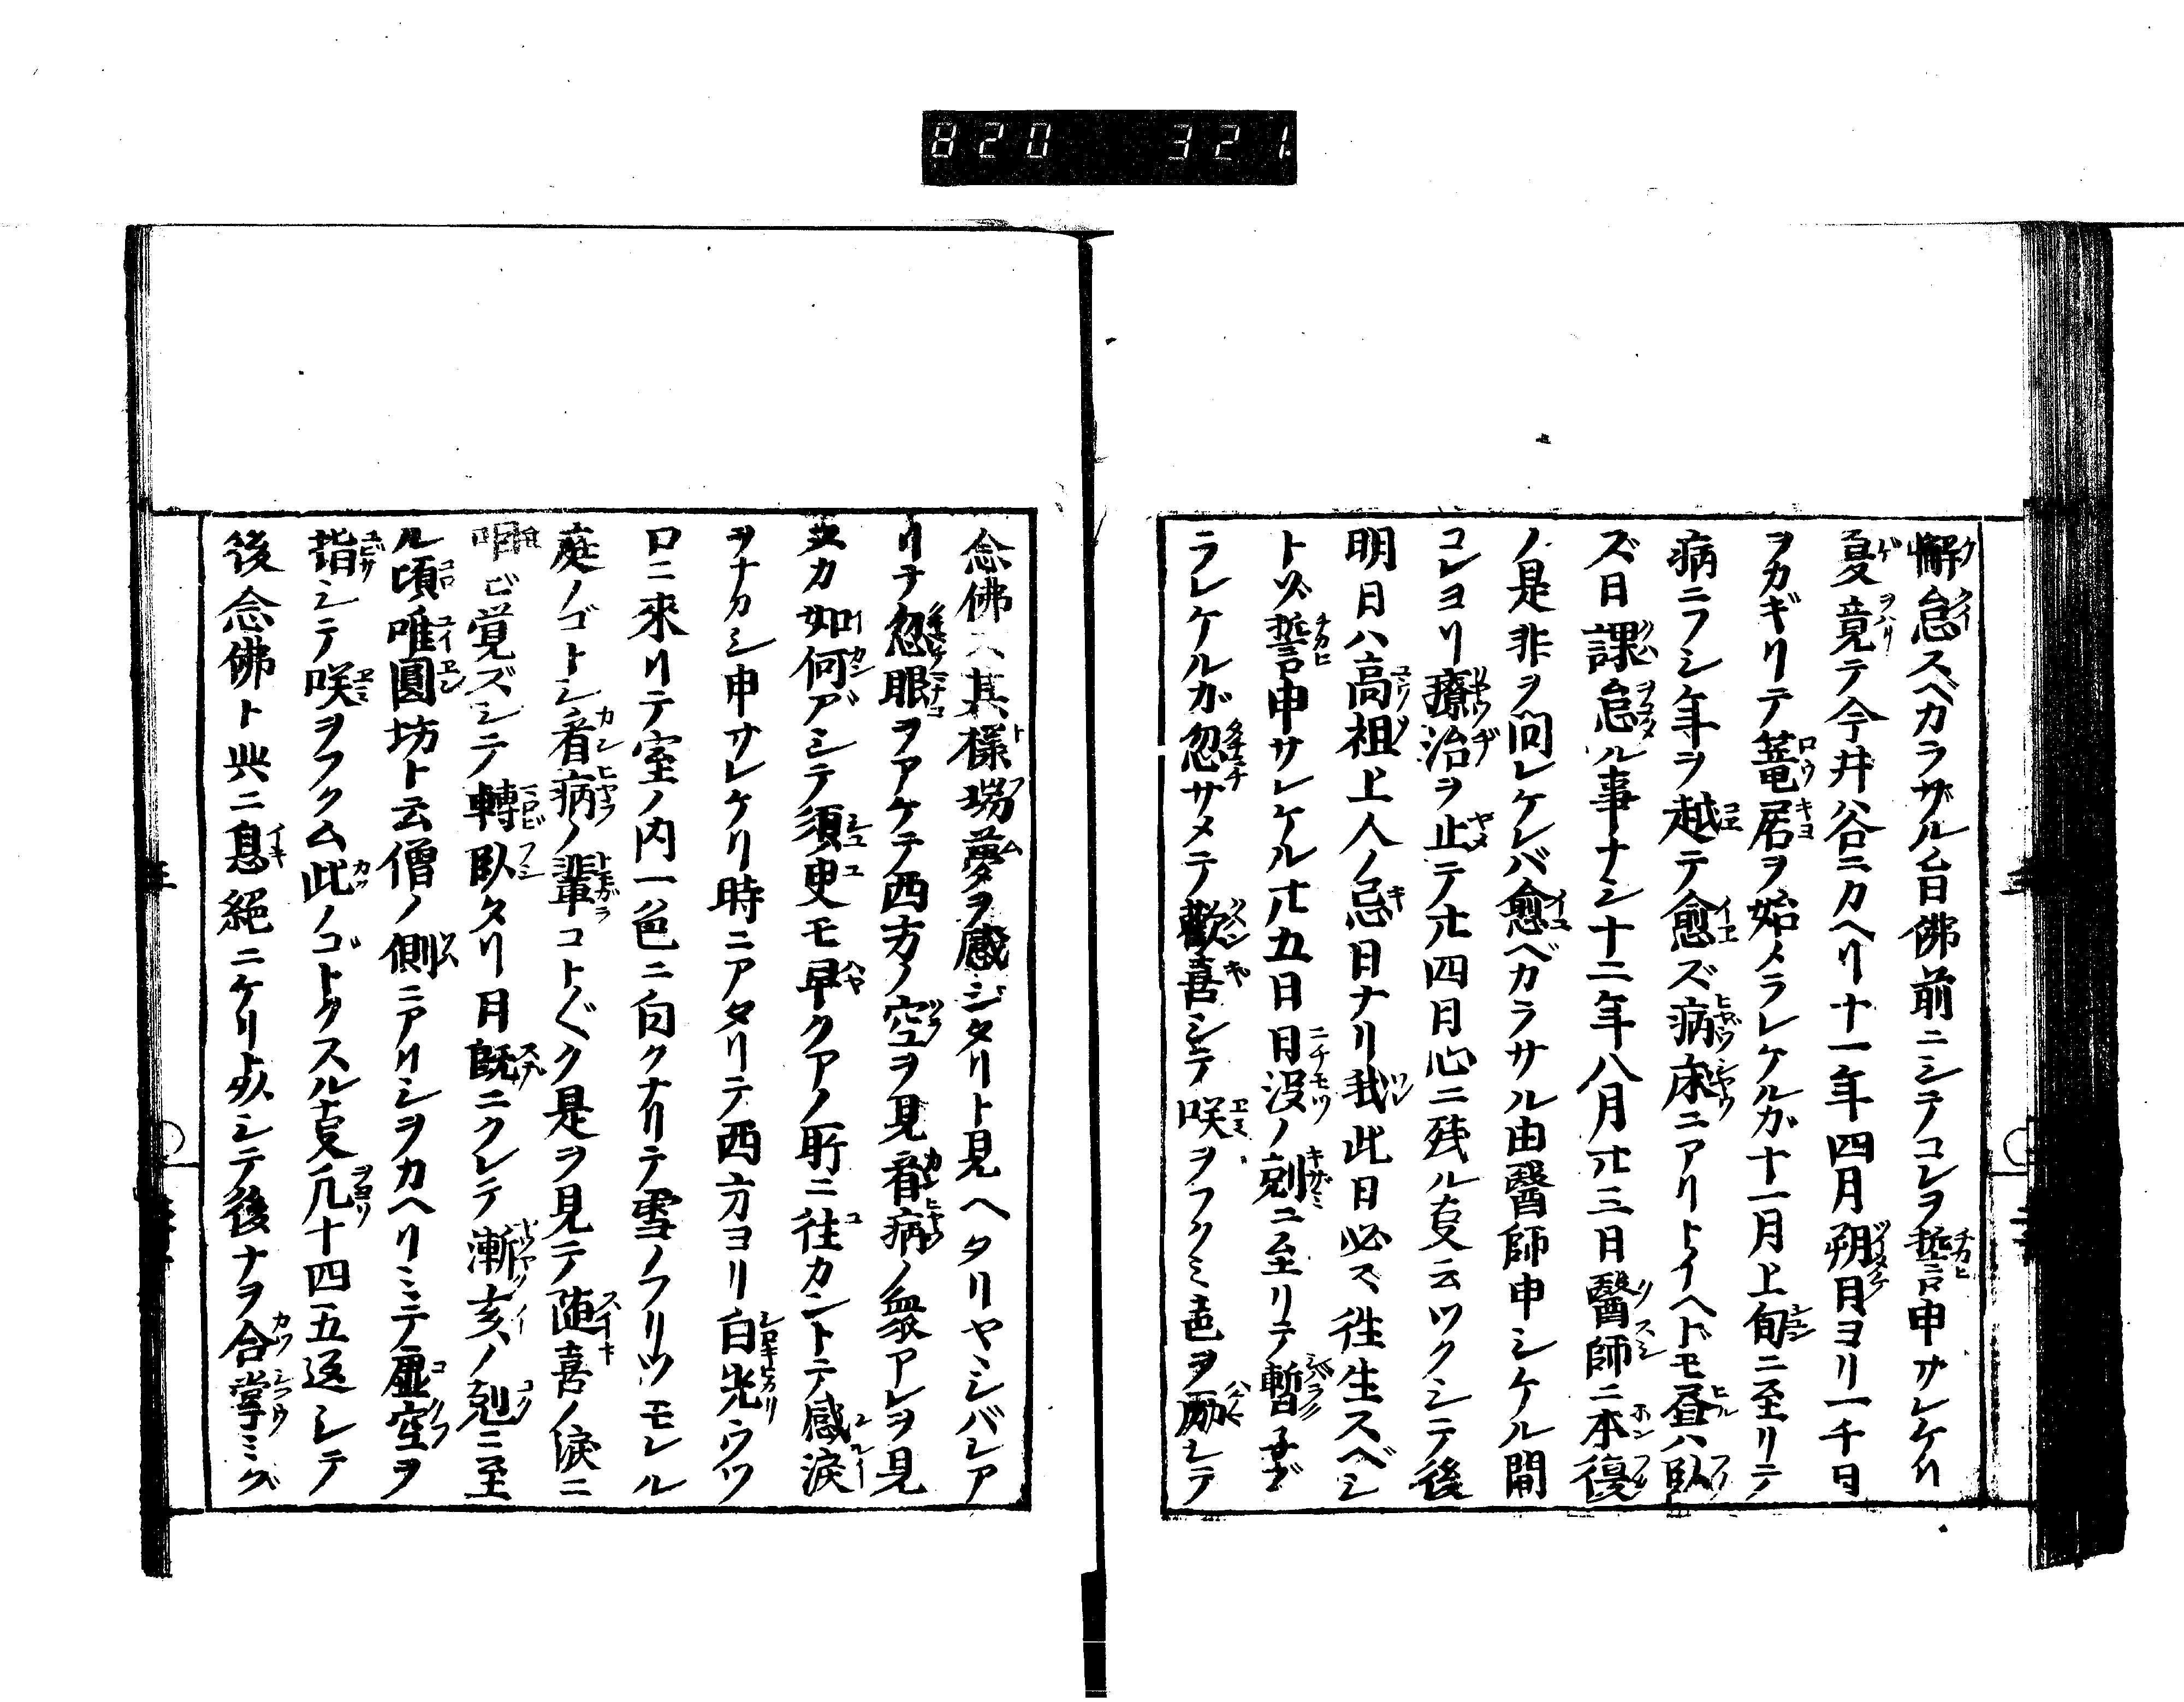 820 321
懈怠スベカラザル旨佛前ニシテコレヲ誓申サレケリ
夏竟テ今井谷ニカヘリ十一年四月朔日ヨリ一千日
ヲカギリテ篭居ヲ始メラレケルガ十一月上旬ニ至リテ
病ニフシ年ヲ越テ愈ズ病床ニアリトイヘドモ昼ハ臥
ズ日課怠ル事ナシ十二年八月廿三日醫師ニ本復
ノ是非ヲ問レケレバ愈ベカラサル由醫師申シケル間
コレヨリ療治ヲ止テ廿四日心ニ残ル㕝云ツクシテ後
明日ハ高祖上人ノ忌日ナリ我此日必ス往生スベシ
トゾ誓申サレケル廿五日日没ノ剋ニ至リテ暫子ブ
ラレケルガ忽サメテ歡喜シテ咲ヲフクミ声ヲ励シテ
念佛ス其様瑞夢ヲ感ジタリト見ヘタリヤヽシバシア
リテ忽眼ヲアケテ西方ノ空ヲ見看病ノ衆アレヲ見
玉カ如何ガシテ須臾モ早クアノ所ニ往カントテ感涙
ヲナカシ申サレケリ時ニアタリテ西方ヨリ白光ウツ
ロニ來リテ室ノ内一色ニ白クナリテ雪ノフリツモレル
庭ノゴトシ看病ノ輩コト〲ク是ヲ見テ随喜ノ涙ニ
咽ビ覚ズシテ轉臥タリ日既ニクレテ漸亥ノ剋ニ至
ル頃唯圓坊ト云僧ノ側ニアリシヲカヘリミテ虚空ヲ
指シテ咲ヲフクム此ノゴトクスル㕝凡十四五返シテ
後念佛ト與ニ息絶ニケリ𫢏シテ後ナヲ合掌ミダ